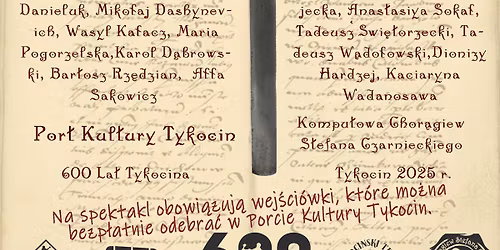 Danieluk, Mikołaj Dasbynev-
icb, Wasyl Kafacz, Maria
Pogorzelska, Karol Dąbrows-
ki, Bartosz Rzędzian, Affa
Sakowicz
Port Kultury Tykocin
600 Lat Tykocina
jecka, Anastasiya Sokaf,
Tadeusz Świętorzecki, Ta-
deusz Wądołowski, Dionizy
Hardzej, Kaciaryna
Wadanosawa
Komputowa Chorągiew
Stefana Czarnieckiego
Tykocin 2025 r.
Na spektakl obowiązują wejściówki, które można
bezpłatnie odebrać w Porcie Kultury Tykocin.
600